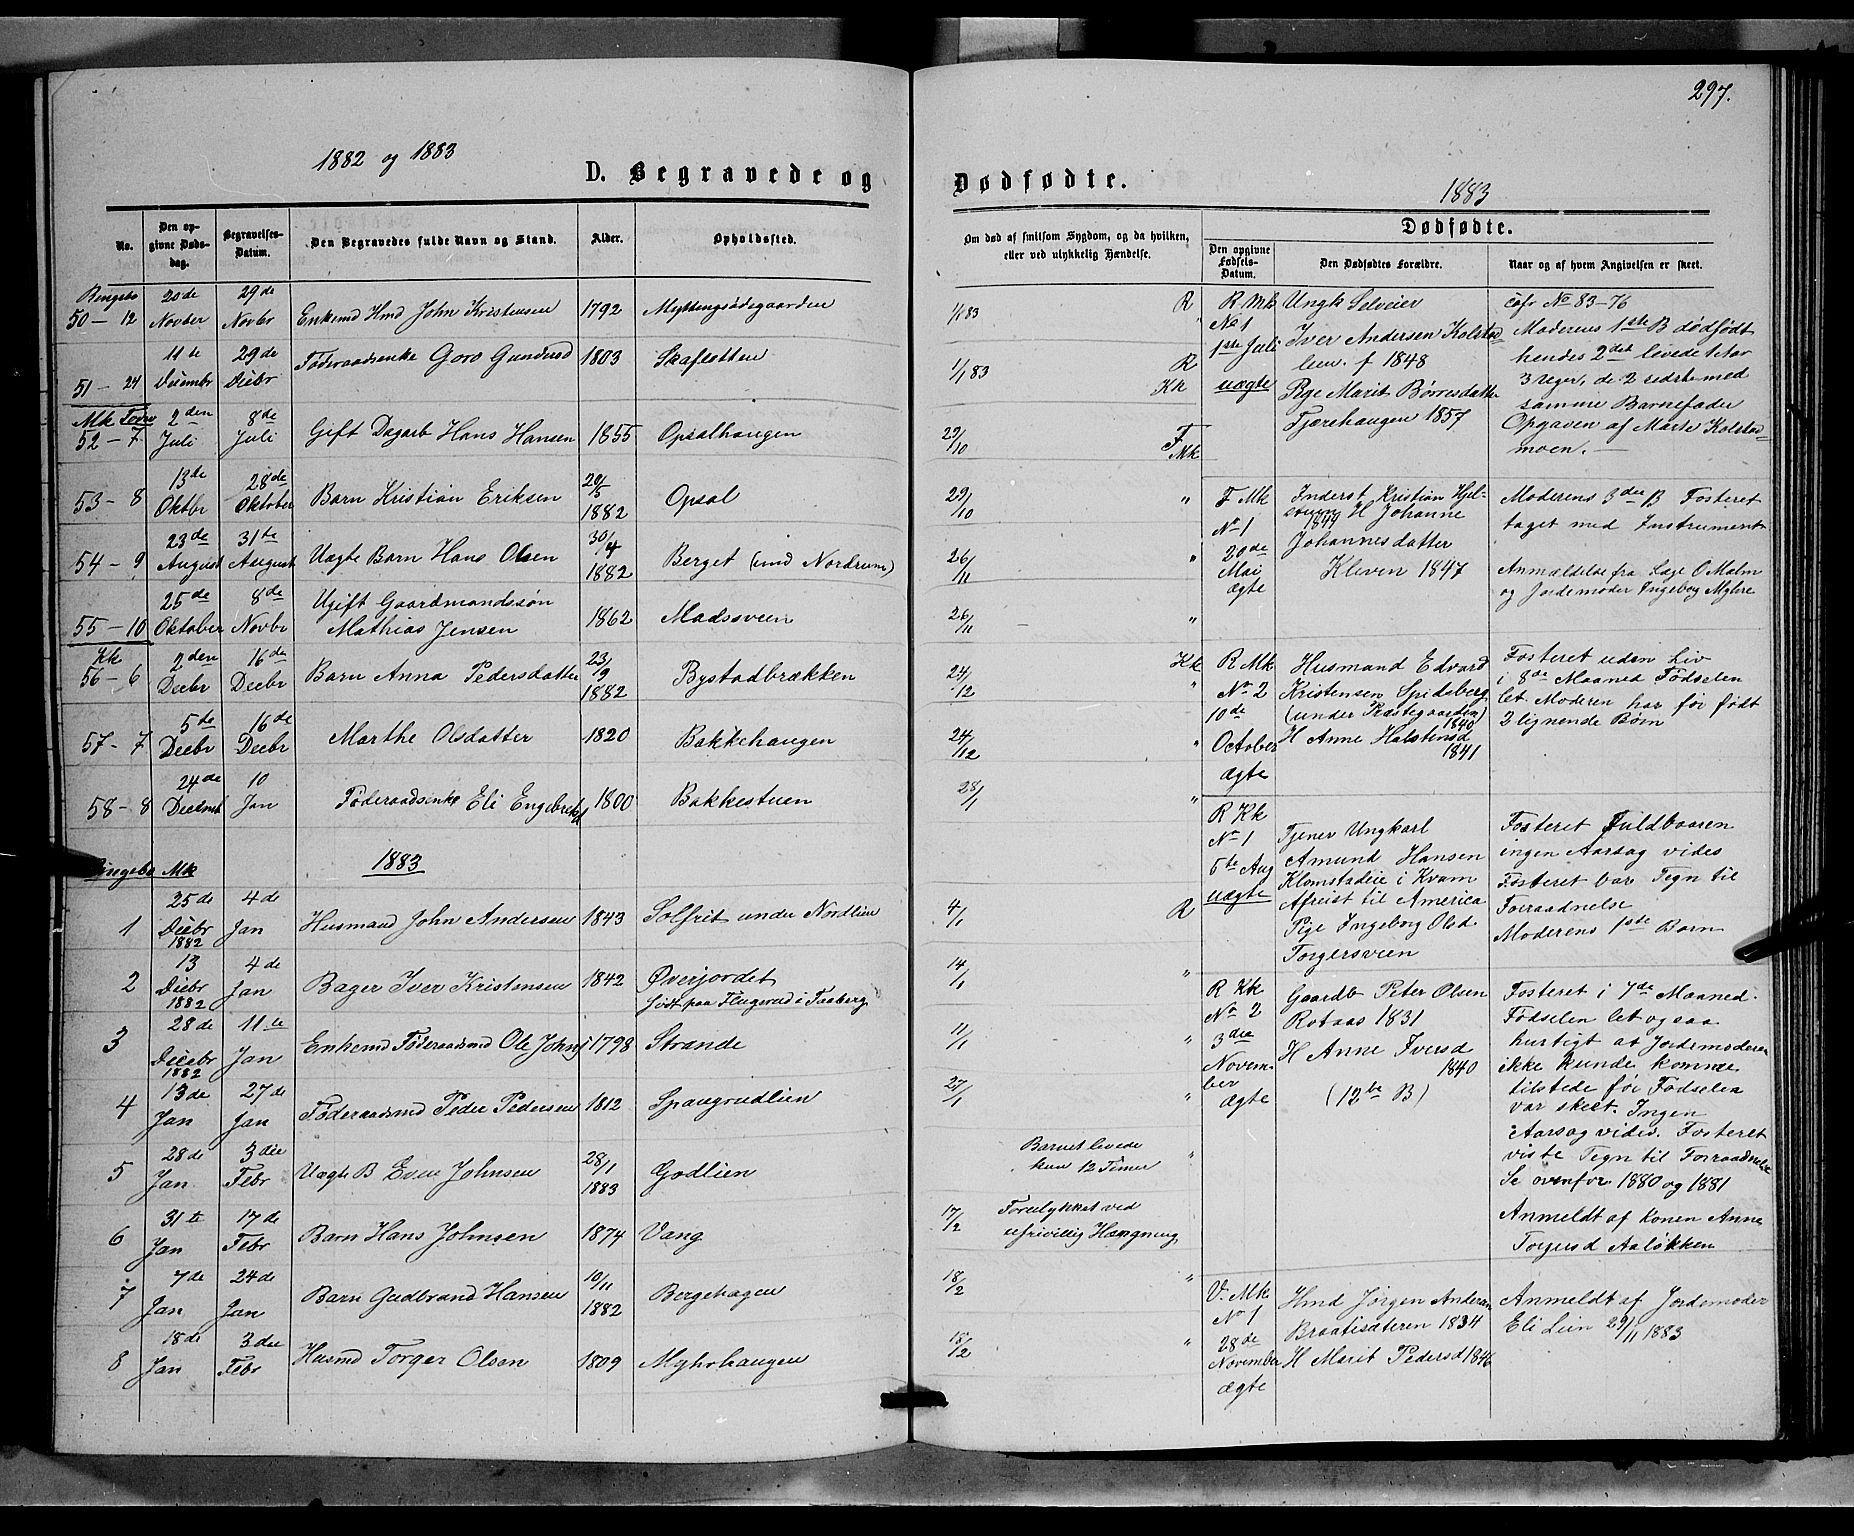 297.
1882 og 1883
D. Begravede og Dødfødte.
1883
No.
Den opgivne Dødsdag.
Begravelses-Datum.
Den Begravedes fulde Navn og Stand.
Alder.
Opholdssted.
Om død af smitsom Sygdom, og da hvilken, eller ved ulykkelig Hændelse.
Dødfødte.
Den opgivne Fødsels-Datum.
Den Dødfødtes Forældre.
Naar og af hvem Angivelsen er skeet.
Ringebo
50-12 20de Novber 29de Novbr Enkemd Hmd John Kristensen 1792 1/1 83 R
51-24 11te Decembr 29de Decbr Føderaadsenke Goro Gundersd 1803 Skafletten 1/1 83 R
Kk
Mk
52-7 2den Juli 8de Juli Gift Dagarb Hans Hansen 1855 Opsalhaugen 29/10 F Mk
53-8 13de Oktbr 28de Oktober Barn Kristian Eriksen 20/5 1882 Opsal 29/10 "
54-9 23de August 31te August Uægte Barn Hans Olsen 30/4 1882 Berget (und Nordrum) 26/11 "
55-10 25de Oktober 8de Novbr Ugift Gaardmandssøn Mathias Jensen 1862 Madssveen 26/11 "
Kk
56-6 2den Decbr 16de Decbr Barn Anna Pedersdatter 23/9 1882 Bystadbrækken 24/12 Kk
57-7 5de Decbr 16de Decbr Marthe Olsdatter 1820 Bakkehaugen 24/12 "
58-8 24de Decembr 10 Jan Føderaadsenke Eli Engebretsd 1800 Bakkestuen 28/1 "
Ringebo Mk 1883
1 25de Decbr 1882 4de Jan Husmand John Andersen 1843 Solfrit under Nordlien 4/1 R
2 13 Decbr 1882 4de Jan Bager Iver Kristensen 1842 Øverjordet født paa Flugsrud i Faaberg 14/1 "
3 28de Decbr 1882 11te Jan Enkemd Føderaadsmd Ole Johns 1798 Strande 11/1 "
4 13de Jan 27de Jan Føderaadsmd Peder Pedersen 1812 Spangrudlien 27/1 "
5 28de Jan 3die Febr Uægte B Even Johnsen 28/1 1883 Godlien Barnet levede kun 12 Timer "
6 31te Jan 17de Febr Barn Hans Johnsen 1874 Vang 17/2 Forulykket ved ufrivillig Hængning
7 7de Jan 24de Jan Barn Gudbrand Hansen 10/11 1882 Bergehagen 18/2 "
8 18de Jan 3die Febr Husmd Torger Olsen 1809 Myhrhaugen 18/2 "
R Mk
No 1
1ste Juli
uægte
Ungk Selveier
Iver Andersen Kolstad-
lien f 1848
Pige Marit Børresdatter
Tjørehaugen 1857
cfr No 83-76
Moderens 1ste B dødfødt
hendes 2det levede 1 Aar
3 Uger, de 2 sidste med
samme Barnefader
Opgaven af Marte Kolstad-
moen. —
F Mk
No 1
20de
Mai
ægte
Inderst Kristian Hjel-
1849 H Johanne
Johannesdatter
Kleven 1847
Moderens 3die B Fosteret
taget med Instrument
Anmældelse fra Læge O Malm
og Jordemoder Ingeborg Myhre
R Mk
No 2
10de
October
ægte
Husmand Edvard
Kristensen Spidsberg
(under Præstegaarden)
1840
H Anne Halstensd
1841
Fosteret uden Liv
i 8de Maaned Fødselen
let Moderen har før født
2 lignende Børn
R Kk
No 1
5te Aug
uægte
Tjener Ungkarl
Amund Hansen
Klomstadeie i Kvam
Afreist til America
Pige Ingeborg Olsd
Torgersveen
Fosteret Fuldbaaren
ingen Aarsag vides
Fosteret bar Tegn til
Forraadnelse
Moderens 1ste Barn
R Kk
No 2
3die
Novem-
ber
ægte
Gaardb Peter Olsen
Rotaas 1831
H Anne Iversd
1840
(12te B)
Fosteret i 7de Maaned.
Fødselen let og saa
hurtigt at Jordemoderen
ikke kunde komme
tilstede før Fødselen
var skeet. Ingen
Aarsag vides. Fosteret
viste Tegn til Forraadnelse
Se ovenfor 1880 og 1881
Anmeldt af Konen Anne
Torgersd Aaløkken
V. Mk
No 1
28de
November
ægte
Hmd Jørgen Andersen
Braatisæteren 1834
H Marit Pedersd 1846
Anmeldt af Jordemoder
Eli Lien 29/11 1883